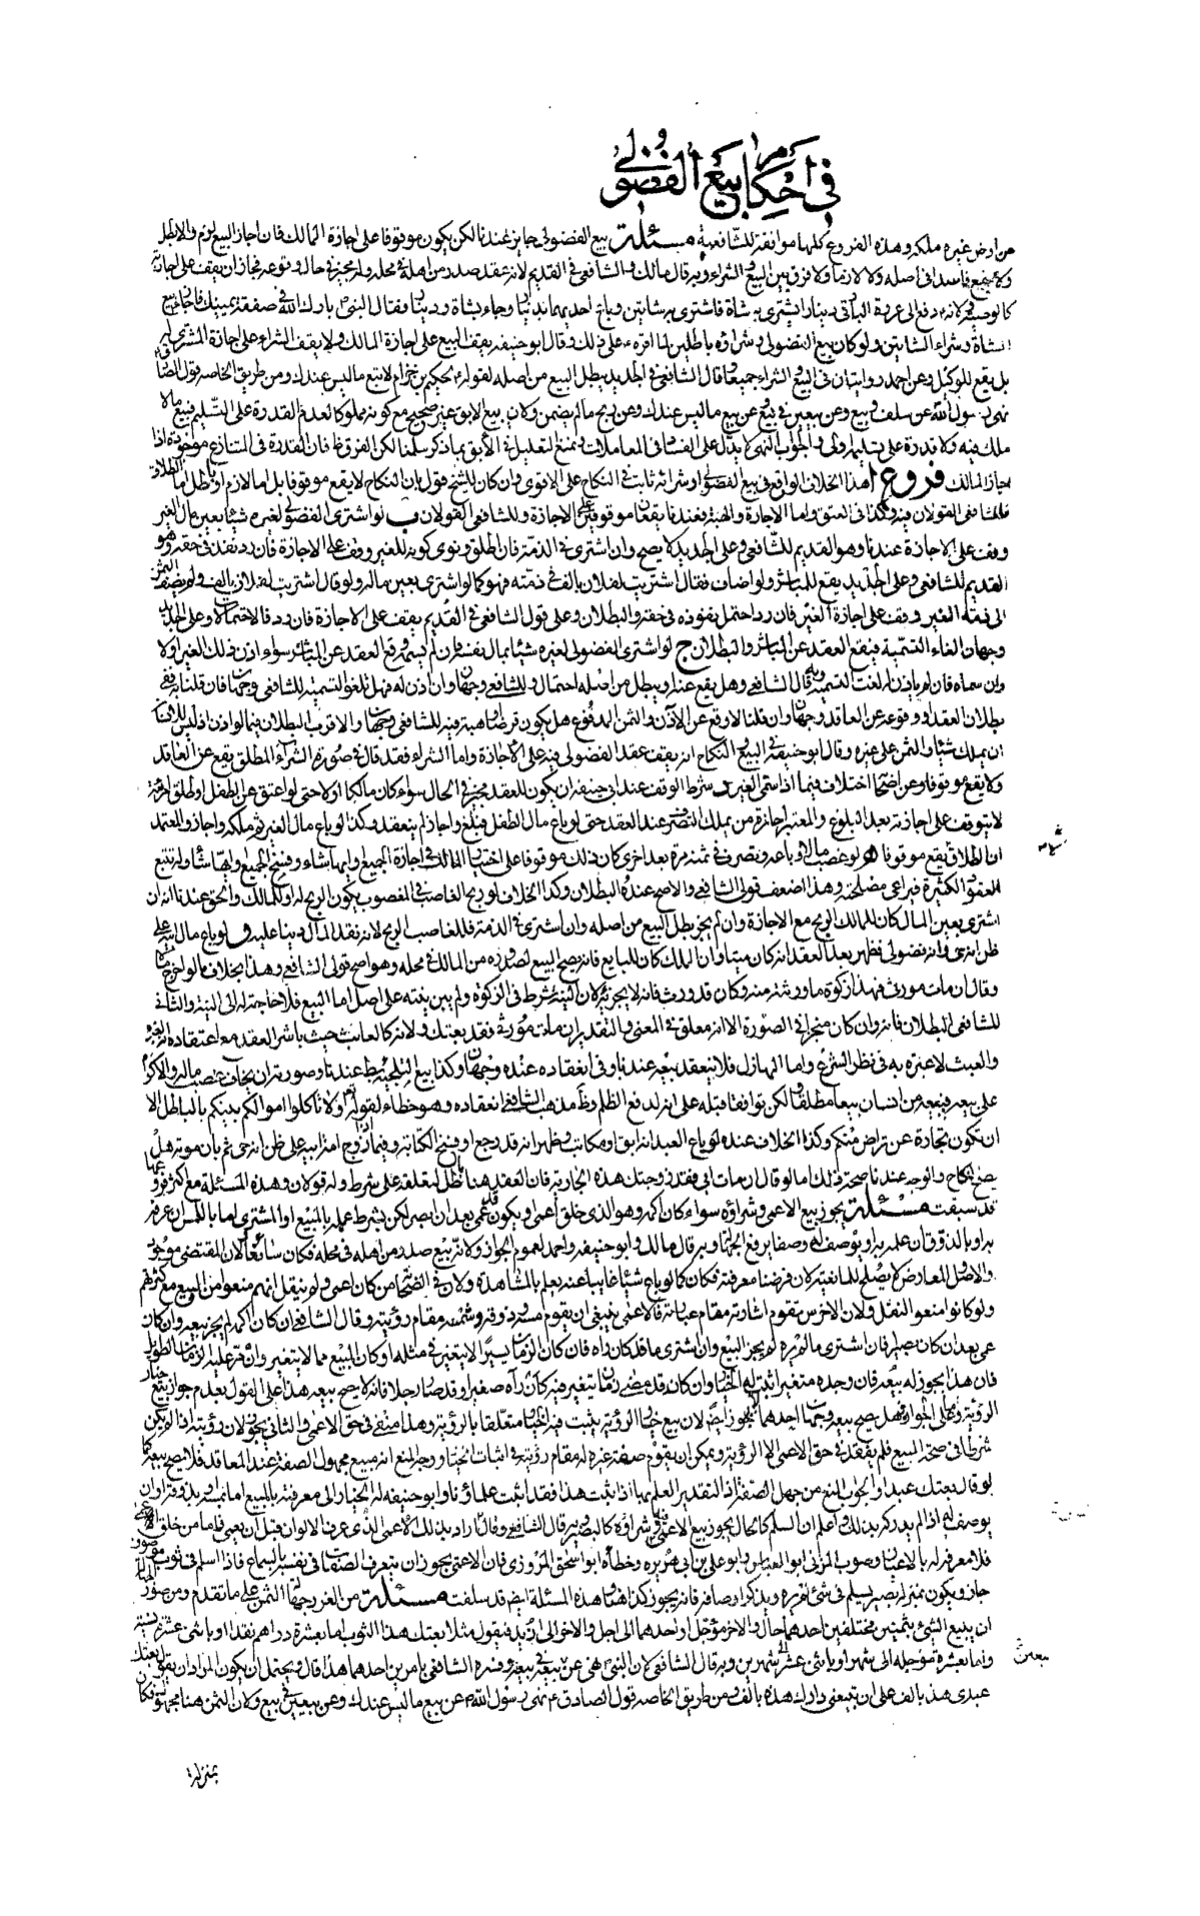 في احكام بيع الفضولي
من ارض غيره ملكه وهذه الفروع كلها موافقة للشافعية مسئلة بيع الفضولي جايز عندنا لكن يكون موقوفا على اجازة المالك فان اجاز البيع لزم والا بطل
ولا يقع فاسدا في اصله ولا لازما ولا فرق بين البيع والشراء وبه قال مالك والشافعي في القديم لانه عقد صدر من اهله في محله وله مجيز في حال وقوعه فجاز ان يقف على اجازته
كالوصية ولانه دفع الى عروة البارقي دينارا ليشتري به شاة فاشترى به شاتين وباع احديهما بدينار وجاء بشاة ودينار فقال النبي بارك الله في صفقة يمينك فاجاز بيع
الشاة وشراء الشاتين ولو كان بيع الفضولي وشراؤه باطلين لما اقره على ذلك وقال ابو حنيفة يقف البيع على اجازة المالك ولا يقف الشراء على اجازة المشتري له
بل يقع للوكيل وعن احمد روايتان في البيع والشراء جميعا وقال الشافعي في الجديد يبطل البيع من اصله لقوله لحكيم بن حزام لا تبع ما ليس عندك ومن طريق الخاصة قول الصادق
نهى رسول الله عن سلف وبيع وعن بيعين في بيع وعن بيع ما ليس عندك وعن ربح ما لم يضمن ولان بيع الابق غير صحيح مع كونه مملوكا لعدم القدرة على التسليم فبيع ما لا
ملك فيه ولا قدرة على تسليمه اولى والجواب النهي لا يدل على الفساد في المعاملات ونمنع التعليل في الآبق بما ذكر سلمنا لكن الفرق ظ فان القدرة في المتنازع موجودة اذا
اجاز المالك فروع ا هذا الخلاف الواقع في بيع الفضولي او شرائه ثابت في النكاح على الاقوى وان كان للشيخ قول بان النكاح لا يقع موقوفا بل اما لازم او باطل اما الطلاق
فللشافعي القولان فيه وكذا في العتق واما الاجارة والهبة فعندنا يقعان موقوفين على الاجازة وللشافعي القولان ب لو اشترى الفضولي لغيره شيئا بعين مال الغير
وقف على الاجازة عندنا وهو القديم للشافعي وعلى الجديد لا يصح وان اشترى في الذمة فان اطلق ونوى كونه للغير وقف على الاجازة فان رد نفذ في حقه وهو
القديم للشافعي وعلى الجديد يقع للمباشر ولو اضاف فقال اشتريت لفلان بالف في ذمته فهو كما لو اشترى بعين ماله ولو قال اشتريت لفلان بالف ولم يضف الثمن
الى ذمة الغير وقف على اجازة الغير فان رد احتمل نفوذه في حقه والبطلان وعلى قول الشافعي في القديم يقف على الاجازة فان رد فالاحتمالان وعلى الجديد
وجهان الغاء التسمية فيقع العقد عن المباشر والبطلان ج لو اشترى الفضولي لغيره شيئا بمال نفسه فان لم يسمه وقع العقد عن المباشر سواء اذن ذلك الغير او لا
وان سماه فان لم ياذن له لغت التسمية وبه قال الشافعي وهل يقع عنه او يبطل من اصله احتمال وللشافعي وجهان وان اذن له فهل تلغو التسمية للشافعي وجهان فان قلنا به ففي
بطلان العقد او وقوعه عن العاقد وجهان وان قلنا لا وقع عن الآذن والثمن المدفوع هل يكون قرضا او هبة فيه للشافعي وجهان والاقرب البطلان فيما لو اذن اذ ليس للانسان
ان يملك شيئا والثمن على غيره وقال ابو حنيفة في البيع والنكاح انه يقف عقد الفضولي فيه على الاجازة واما الشراء فقد قال في صورة الشراء المطلق يقع عن العاقد
ولا يقع موقوفا وعن اصحابه اختلاف فيما اذا سمى الغير د شرط الوقف عند ابي حنيفة ان يكون للعقد مجيز في الحال سواء كان مالكا او لا حتى لو اعتق عن الطفل او طلق امراته
لا يتوقف على اجازته بعد البلوغ والمعتبر اجازة من يملك التصرف عند العقد حتى لو باع مال الطفل فبلغ واجاز لم ينعقد وكذا لو باع مال الغير ثم ملكه واجاز والمعتمد
ان الطلاق يقع موقوفا ه لو غصب مالا وباعه وتصرف في ثمنه مرة بعد اخرى كان ذلك موقوفا على اختيار المالك في اجازة الجميع او ايها شاء وفسخ الجميع وايها شاء وله تتبع
العقود الكثيرة فيراعى مصلحته وهذا اضعف قولي الشافعي والاصح عنده البطلان وكذا الخلاف لو ربح الغاصب في المغصوب يكون الربح له او للمالك والحق عندنا انه ان
اشترى بعين المال كان للمالك الربح مع الاجازة وان لم يجز بطل البيع من اصله وان اشترى في الذمة فللغاصب الربح لانه نقد المال دينا عليه و لو باع مال ابيه على
ظن انه حي وانه فضولي فظهر بعد العقد انه كان ميتا وان الملك كان للبايع فانه يصح البيع لصدوره من المالك في محله وهو اصح قولي الشافعي وهذا بخلاف ما لو اخرج مالا
وقال ان مات مورثي فهذا زكوة ما ورثته منه وكان قد ورث فانه لا يجزيه لان النية شرط في الزكوة ولم يبن نيته على اصل اما البيع فلا حاجة له الى النية والثاني
للشافعي البطلان فانه وان كان منجزا في الصورة الا انه معلق في المعنى والتقدير ان مات مورثي فقد بعتك ولانه كالعابث حيث باشر العقد مع اعتقاده انه لغيره
والعبث لا عبرة به في نظر الشرع واما الهازل فلا ينعقد بيعه عندنا وفي انعقاده عنده وجهان وكذا بيع التلجية باطل عندنا وصورته ان يخاف غصب ماله والاكراه
على بيعه فيبيعه من انسان بيعا مطلقا ولكن توافقا قبله على انه لدفع الظلم وظ مذهب الشافعي انعقاده وهو خطاء لقوله تع ولا تاكلوا اموالكم بينكم بالباطل الا
ان تكون تجارة عن تراض منكم وكذا الخلاف عنده لو باع العبد انه ابق او مكاتب وظهر انه قد رجع او فسخ الكتابة وفيما لو زوج امة ابيه على ظن انه حي ثم بان موته هل
يصح النكاح والوجه عندنا صحة ذلك اما لو قال ان مات ابي فقد زوجتك هذه الجارية فان العقد هنا باطل لتعلقه على شرط وله قولان وهذه المسئلة مع اكثر فروعها
قد سبقت مسئلة يجوز بيع الاعمى وشراؤه سواء كان اكمه وهو الذي خلق اعمى او يكون قد عمي بعد ان ابصر لكن بشرط علمه بالمبيع او المشتري اما باللمس ان عرفه
به او بالذوق ان علمه به او يوصف له وصفا يرفع الجهالة وبه قال مالك وابو حنيفة واحمد لعموم الجواز ولانه بيع صدر من اهله في محله فكان سائغا لان المقتضي موجود
والاصل المعارض لا يصلح للمانعية لان فرضنا معرفته فكان كما لو باع شيئا غايبا عنه يعلم بالمشاهدة ولان في الصحابة من كان اعمى ولم ينقل انهم منعوه من البيع مع كثرتهم
ولو كانوا منعوا لنقل ولان الاخرس تقوم اشارته مقام عبارته فالاعمى ينبغي ان يقوم لمسه وذوقه وشمه مقام رؤيته وقال الشافعي ان كان اكمه لم يجز بيعه وان كان
عمي بعد ان كان بصيرا فان اشترى ما لم يره لم يجز البيع وان اشترى ما قد كان رآه فان كان الزمان يسيرا لا يتغير في مثله او كان المبيع مما لا يتغير وان مر عليه الزمان الطويل
فان هذا يجوز له بيعه فان وجده متغيرا ثبت له الخيار وان كان قد مضى زمان يتغير فيه كان رآه صغيرا وقد صار رجلا فانه لا يصح بيعه هذا على القول بعدم جواز بيع خيار
الرؤية وعلى الجواز فهل يصح بيعه وجهان احدهما لا يجوز ايضا لان بيع خيار الرؤية يثبت فيه الخيار متعلقا بالرؤية وهذا منتفي في حق الاعمى والثاني يجوز لان رؤيته اذا لم يكن
شرطا في صحة البيع فلم يفقد في حق الاعمى الا الرؤية ويمكن ان يقوم صفة غيره له مقام رؤيته في اثبات الخيار ووجه المنع انه مبيع مجهول الصفة عند المعاقد فلا يصح بيعه كما
لو قال بعتك عبدا والجواب المنع من جهل الصفة اذ التقدير العلم بها اذا ثبت هذا فقد اثبت علماؤنا وابو حنيفة له الخيار الى معرفته بالمبيع اما بمسه او بذوقه او ان
يوصف له اذا لم يدركه بذلك واعلم ان السلم كالحال يجوز بيع الاعمى فيه وشراؤه كالبصير وبه قال الشافعي وقال اراد بذلك الاعمى الذي عرف الالوان قبل ان يعمى فاما من خلق اعمى
فلا معرفة له بالاعيان وصوبه المزني ابو العباس وابو علي بن ابي هريرة وخطاه ابو اسحق المروزي فان الاعمى يجوز ان يتعرف الصفات في نفسه بالسماع فاذا اسلم في ثوب موصوف
جاز ويكون بمنزلة بصير يسلم في شئ لم يره ويذكر اوصافه فانه يجوز كذا هنا وهذه المسئلة ايضا قد سلفت مسئلة من الغرر جهالة الثمن على ما تقدم ومن صور الجهالة
ان يبيع الشئ بثمنين مختلفين احدهما حال والاخر مؤجل او احدهما الى اجل والاخر الى ازيد فيقول مثلا بعتك هذا الثوب اما بعشرة دراهم نقدا او باثني عشر نسية
واما بعشرة مؤجلة الى شهر او باثني عشر الى شهرين وبه قال الشافعي لان النبي نهى عن بيعين في بيعة وفسره الشافعي بامرين احدهما هذا قال ويحتمل ان يكون المراد ان يقول بعتك
عبدي هذا بالف على ان تبيعني دارك هذه بالف ومن طريق الخاصة قول الصادق نهى رسول الله عن بيع ما ليس عندك وعن بيعين في بيع ولان الثمن هنا مجهول فكان
بمنزلة